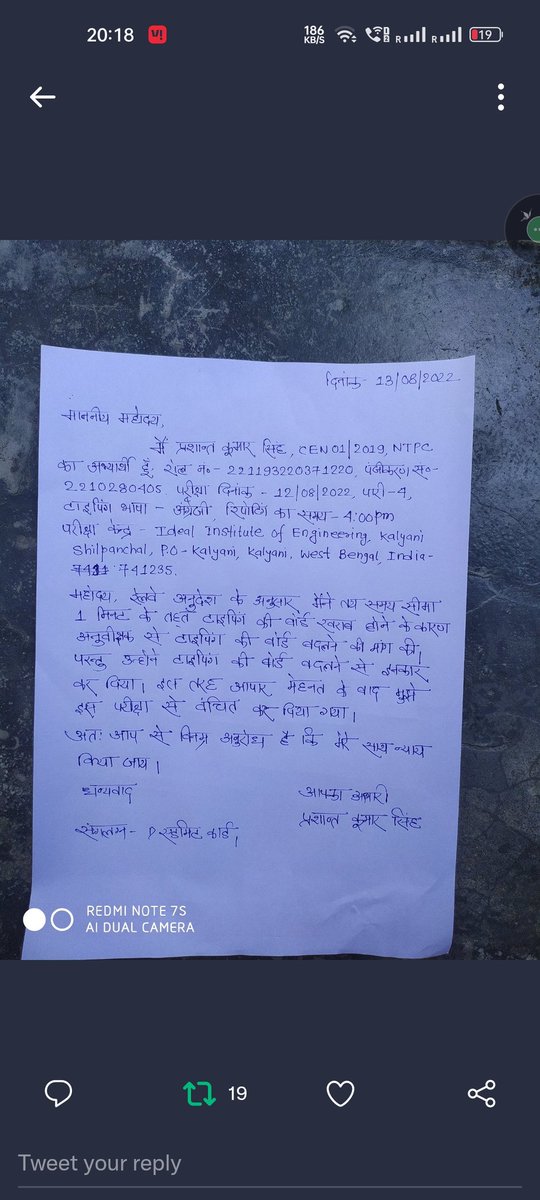 20:18
186
KB/S
R
R
19
दिनांक- 13/08/2022
माननीय महोदय,
मैं प्रशान्त कुमार सिंह, CEN01/2019, NTPC
का अभ्यार्थी हूँ, रोल न०- 221193220371220, पंजीकरण स०-
2210280405, परीक्षा दिनांक - 12/08/2022, पारी-4,
टाइपिंग भाषा - अंग्रेजी, रिपोर्टिंग का समय-4:00pm
परीक्षा केन्द्र - Ideal Institute of Engineering, Kalyani
Shilpanchal, P.O- Kalyani, Kalyani, West Bengal, India-
741235.
महोदय, रेलवे अनुदेश के अनुसार मैंने तय समय सीमा
1 मिनट के तहत टाइपिंग की बोर्ड खराब होने के कारण
अनुवीक्षक से टाइपिंग की बोर्ड बदलने की मांग की,
परन्तु उन्होने टाइपिंग की बोर्ड बदलने से इनकार
कर दिया। इस तरह आपार मेहनत के बाद मुझे
इस परीक्षा से वंचित कर दिया गया।
अतः आप से विनम्र अनुरोध है कि मेरे साथ न्याय
किया जाय।
धन्यवाद
आपका आभारी
प्रशान्त कुमार सिंह
संगलग्न- एडमिट कार्ड,
REDMI NOTE 7S
AI DUAL CAMERA
19
Tweet your reply